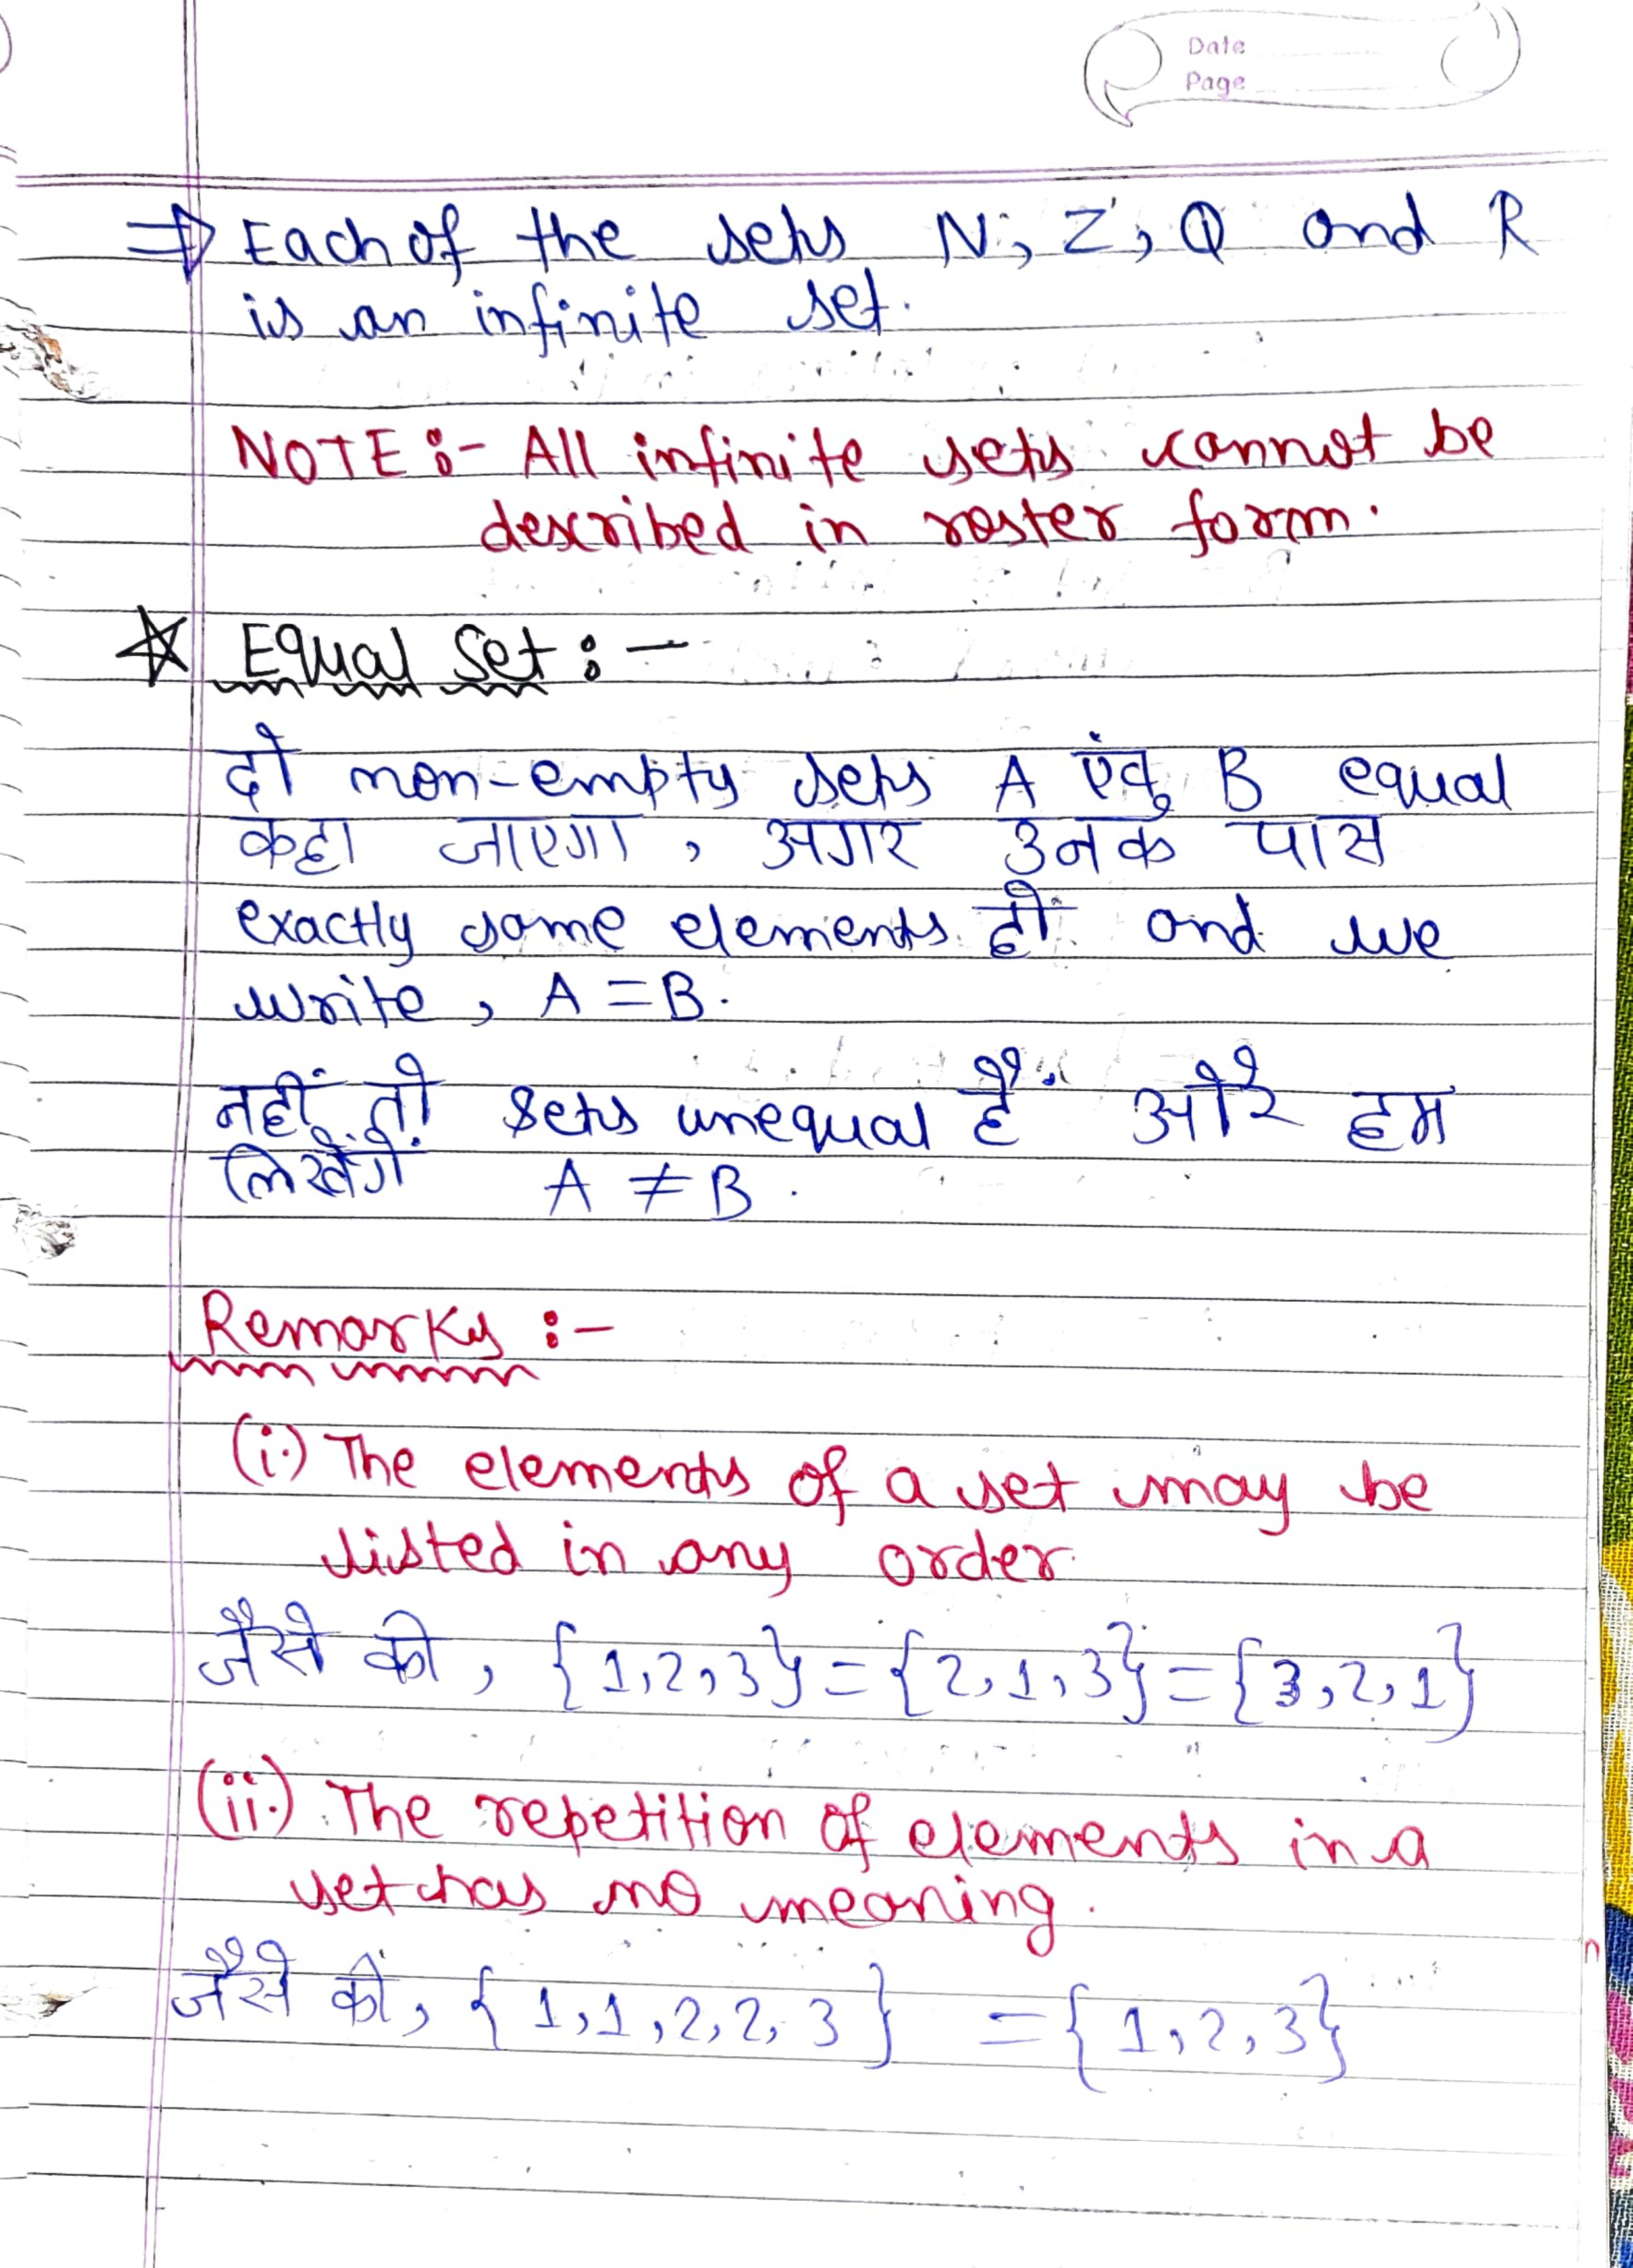 Date
Page
⇒ Each of the sets N, Z, Q and R
is an infinite set.
NOTE :- All infinite sets cannot be
described in roster form.
☆ Equal Set : -
दो non-empty sets A एंव B equal
कहा जाएगा , अगर उनक पास
exactly same elements हो and we
write , A = B.
नहीं तो sets unequal हैं और हम
लिखेंगें A ≠ B .
Remarks :-
(i.) The elements of a set may be
listed in any order.
जैसे की , {1,2,3} = {2,1,3} = {3,2,1}
(ii.) The repetition of elements in a
set has no meaning.
जैसे की, { 1,1,2,2,3 } = {1,2,3}